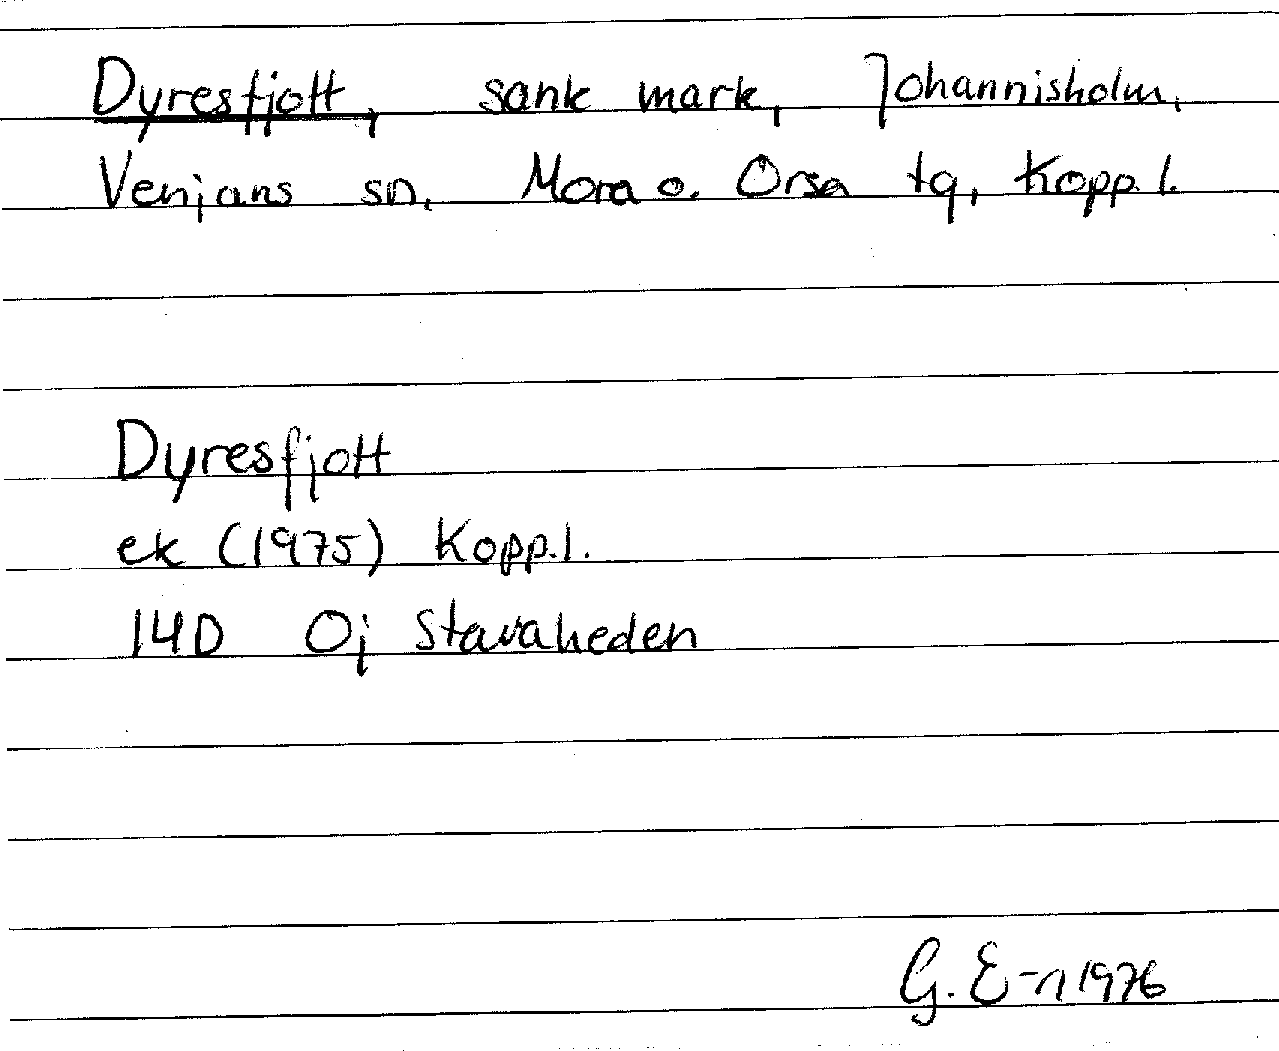 Dyresfjott, sank mark, Johannisholm,
Venjans sn, Mora o. Orsa tg, Kopp. l.
Dyresfjott
ek (1975) Kopp.l.
14D 0j Stavaheden
G. E-n 1976